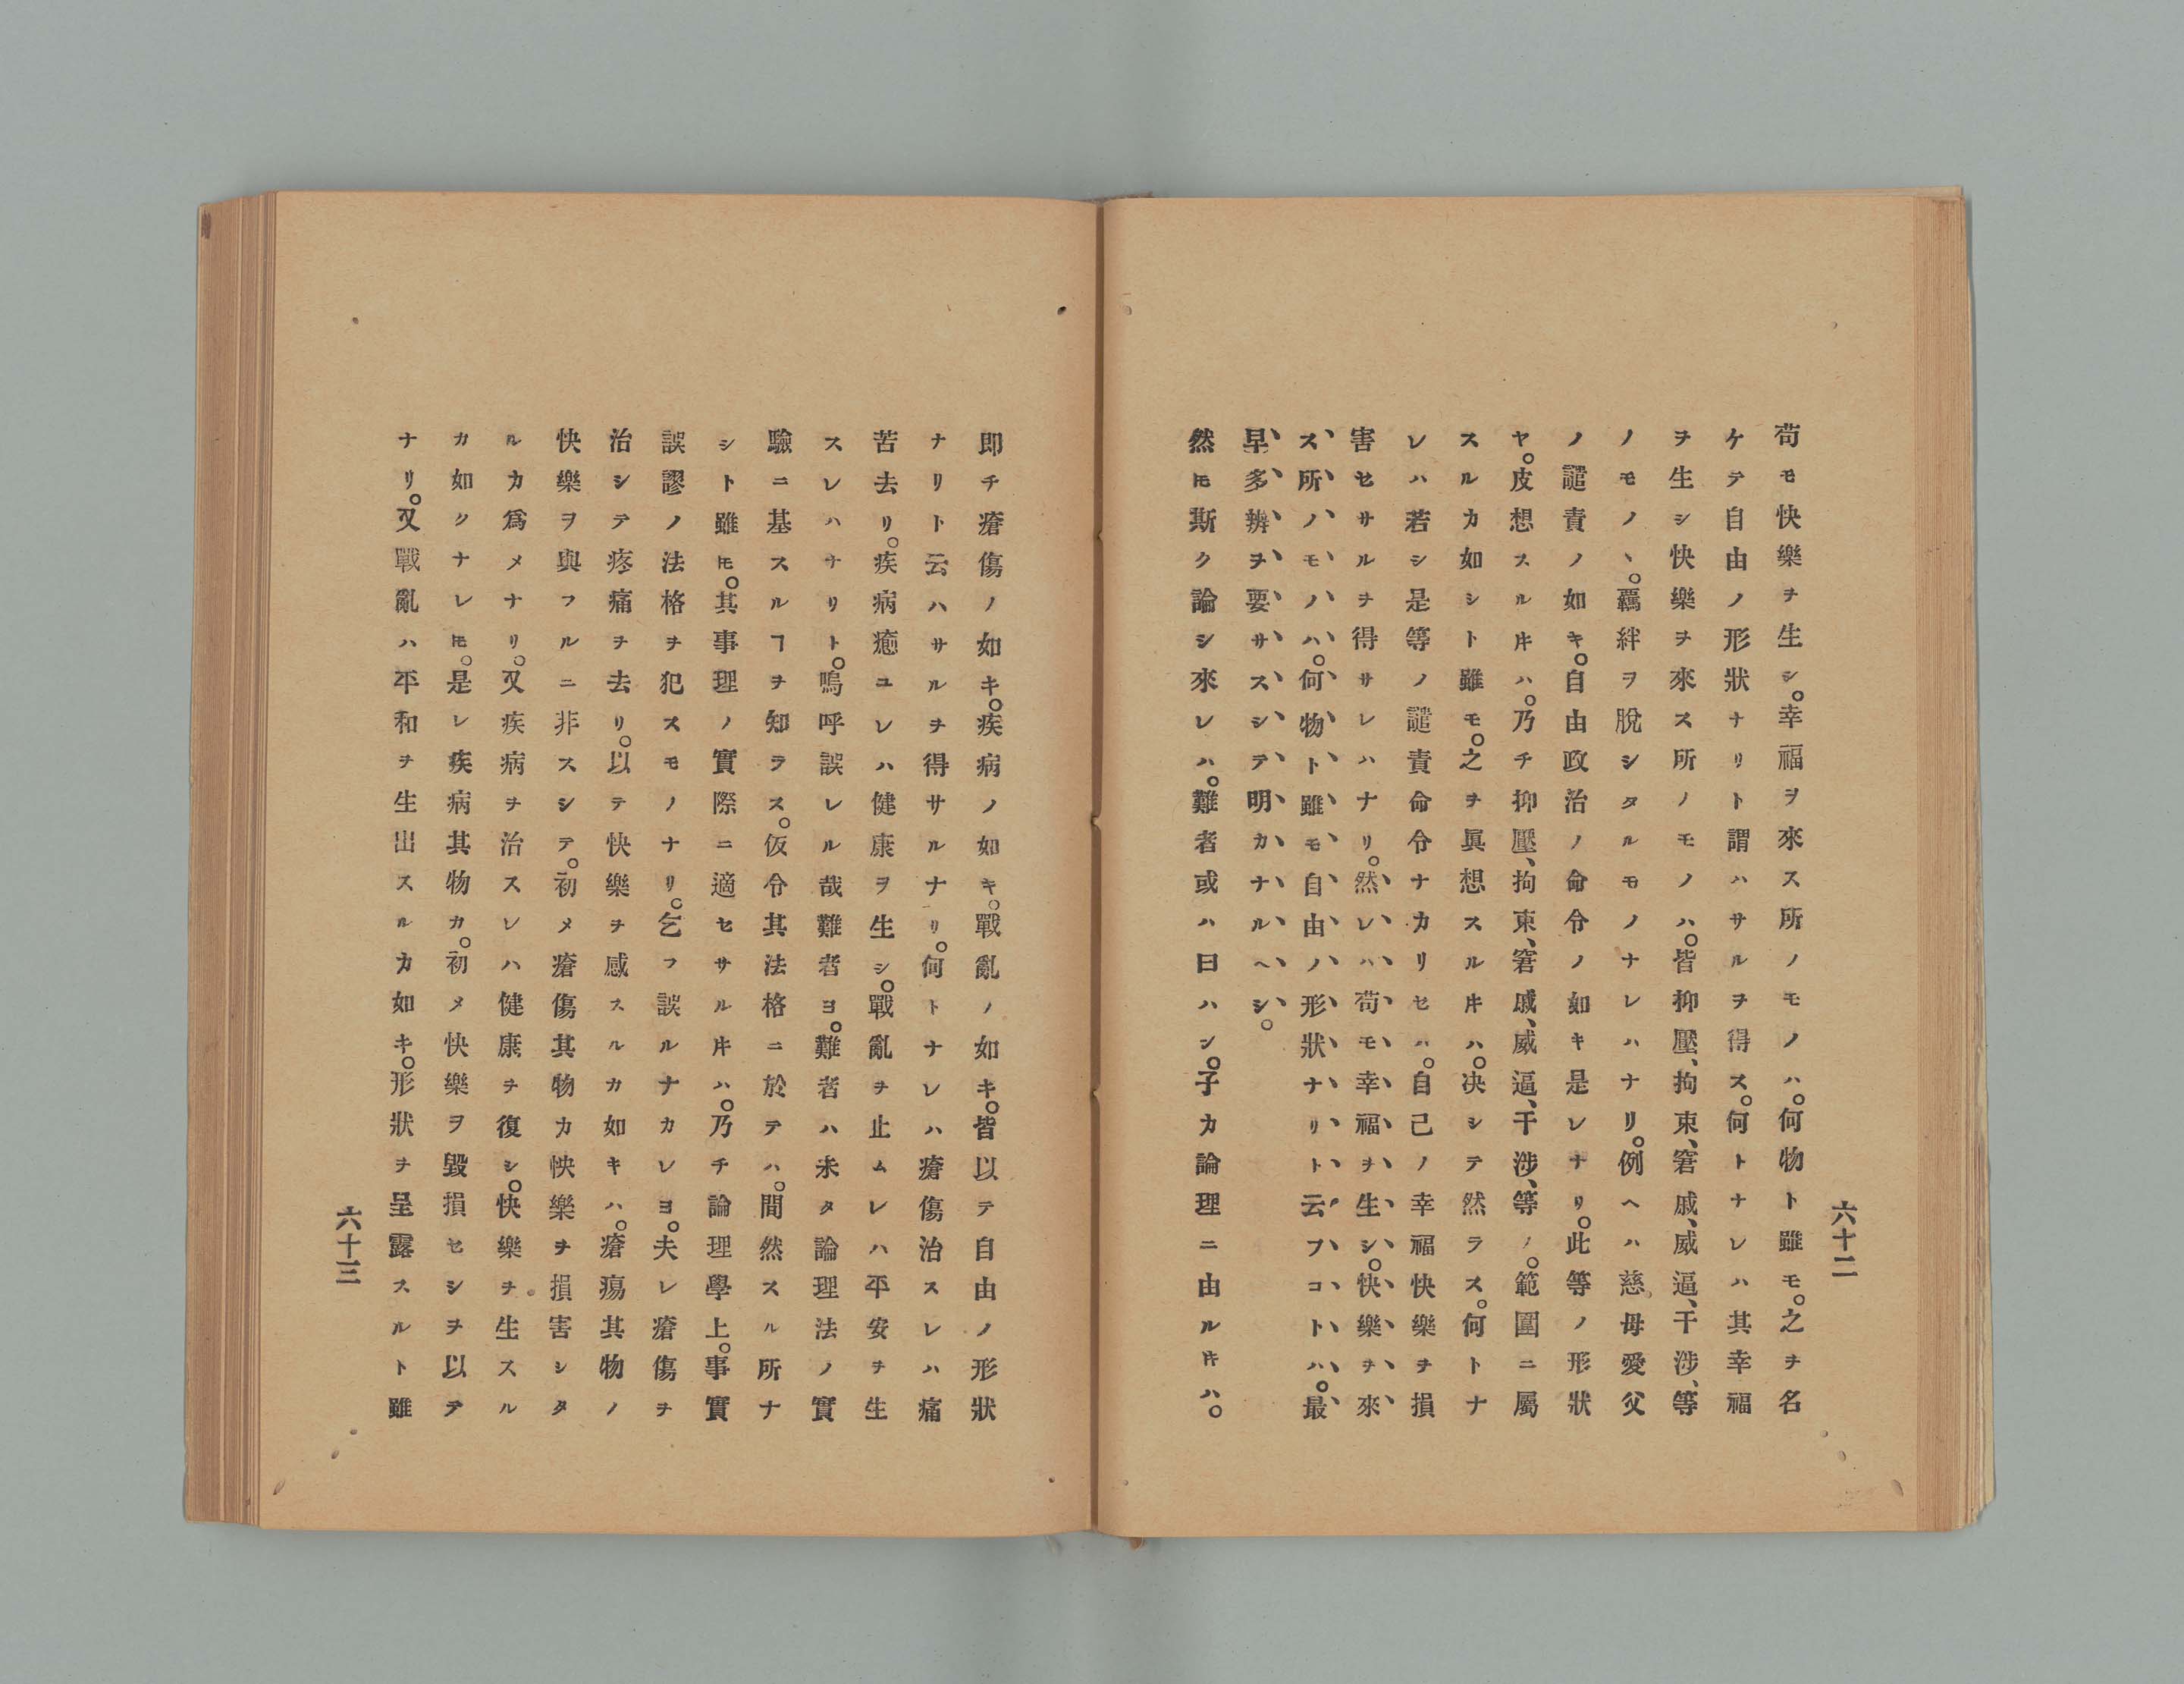 六十二
苟モ快樂ヲ生シ。幸福ヲ來ス所ノモノハ。何物ト雖モ。之ヲ名
ケテ自由ノ形狀ナリト謂ハサルヲ得ス。何トナレハ其幸福
ヲ生シ快樂ヲ來ス所ノモノハ。皆抑壓、拘束、窘戚、威逼、干渉、等
ノモノヽ。羈絆ヲ脫シタルモノナレハナリ。例ヘハ慈母愛父
ノ譴責ノ如キ。自由政治ノ命令ノ如キ是レナリ。此等ノ形狀
ヤ。皮想スルㇳキハ。乃チ抑壓、拘束、窘戚、威逼、干渉、等ノ。範圍ニ屬
スルカ如シト雖モ。之ヲ眞想スルㇳキハ。决シテ然ラス。何トナ
レハ若シ是等ノ譴責命令ナカリセハ。自己ノ幸福快樂ヲ損
害セサルヲ得サレハナリ。然レハ苟モ幸福ヲ生シ。快樂ヲ來
ス所ノモノハ。何物ト雖モ自由ノ形狀ナリト云フコトハ。最
早多辨ヲ要サスシテ明カナルヘシ。
然𪜈斯ク論シ來レハ。難者或ハ曰ハン。子カ論理ニ由ルㇳキハ。
即チ瘡傷ノ如キ。疾病ノ如キ。戰亂ノ如キ。皆以テ自由ノ形狀
ナリト云ハサルヲ得サルナリ。何トナレハ瘡傷治スレハ痛
苦去リ。疾病癒ユレハ健康ヲ生シ。戰亂ヲ止ムレハ平安ヲ生
スレハナリト。嗚呼誤レル哉難者ヨ。難者ハ未タ論理法ノ實
驗ニ基スルヿヲ知ラス。仮令其法格ニ於テハ。間然スル所ナ
シト雖𪜈。其事理ノ實際ニ適セサルㇳキハ。乃チ論理學上。事實
誤謬ノ法格ヲ犯スモノナリ。乞フ誤ルナカレヨ。夫レ瘡傷ヲ
治シテ疼痛ヲ去リ。以テ快樂ヲ感スルカ如キハ。瘡瘍其物ノ
快樂ヲ與フルニ非スシテ。初メ瘡傷其物カ快樂ヲ損害シタ
ルカ爲メナリ。又疾病ヲ治スレハ健康ヲ復シ。快樂ヲ生スル
カ如クナレ𪜈。是レ疾病其物カ。初メ快樂ヲ毀損セシヲ以テ
ナリ。又戰亂ハ平和ヲ生出スルカ如キ。形狀ヲ呈露スルト雖
六十三